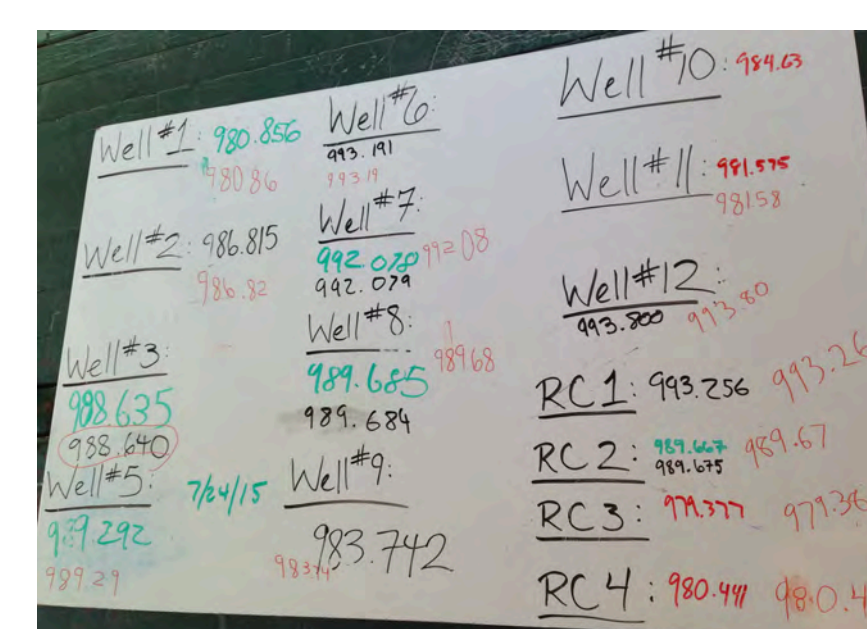 Well #1: 980.856
980.86
Well #2: 986.815
986.82
Well #3:
988.635
988.640
Well #5: 7/24/15
989.292
989.29
Well #6:
993.191
993.19
Well #7:
992.078 992.08
992.079
Well #8:
989.685 989.68
989.684
Well #9:
983.742
983.74
Well #10: 984.63
Well #11: 981.575
981.58
Well #12:
993.800 993.80
RC 1: 993.256 993.26
RC 2: 989.667 989.67
989.675
RC 3: 979.377 979.38
RC 4: 980.441 980.4